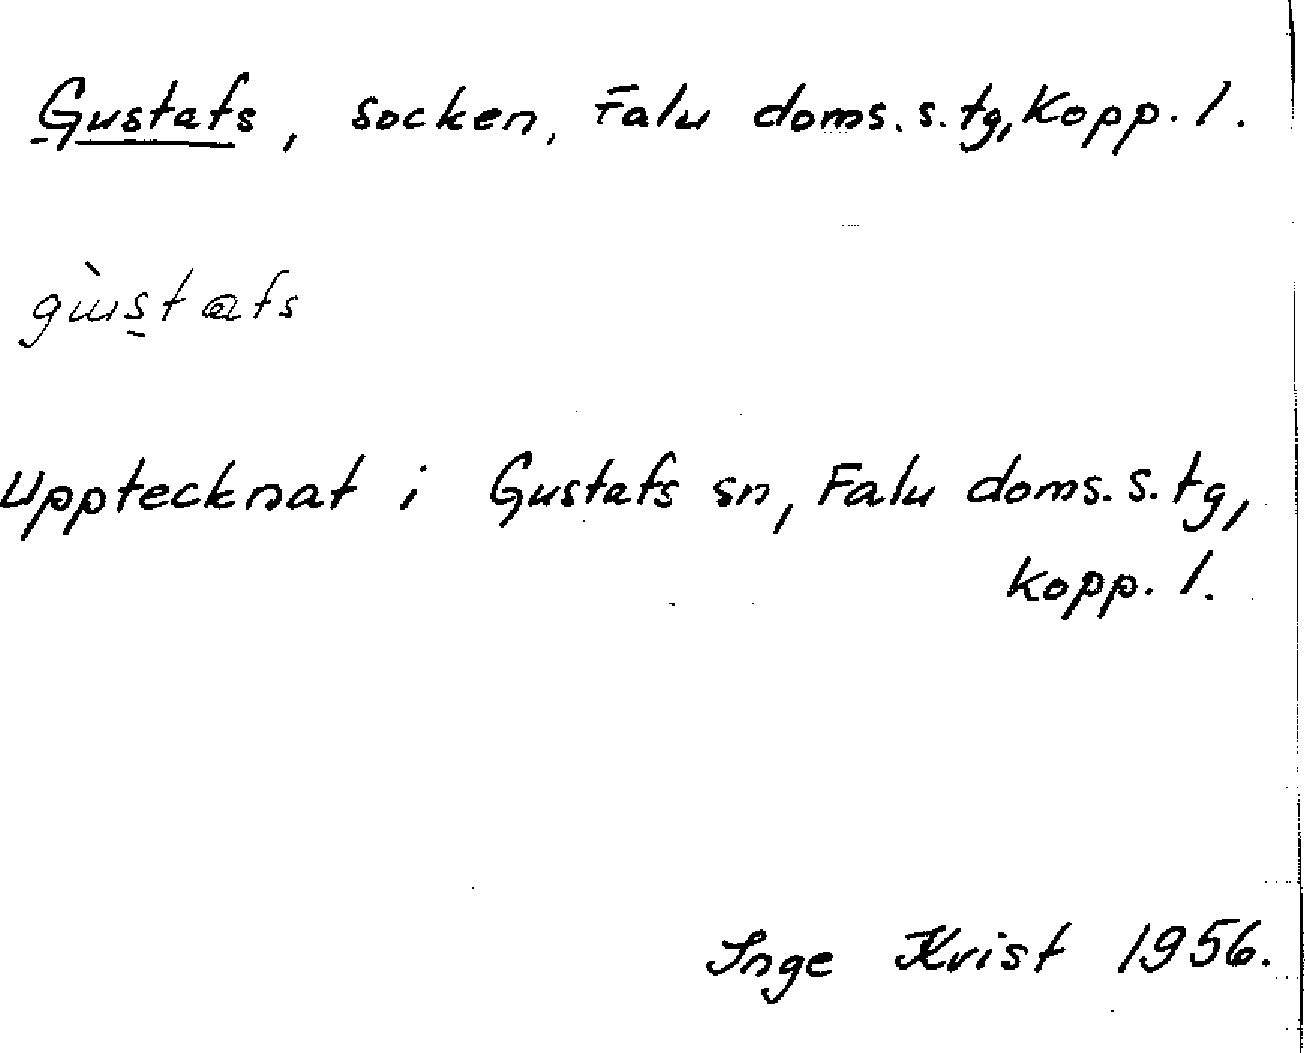 Gustafs, socken, Falu doms.s.tg, Kopp. l.
gɯ̀s̠tafs
Upptecknat i Gustafs sn, Falu doms.s.tg,
Kopp. l.
Inge Kvist 1956.